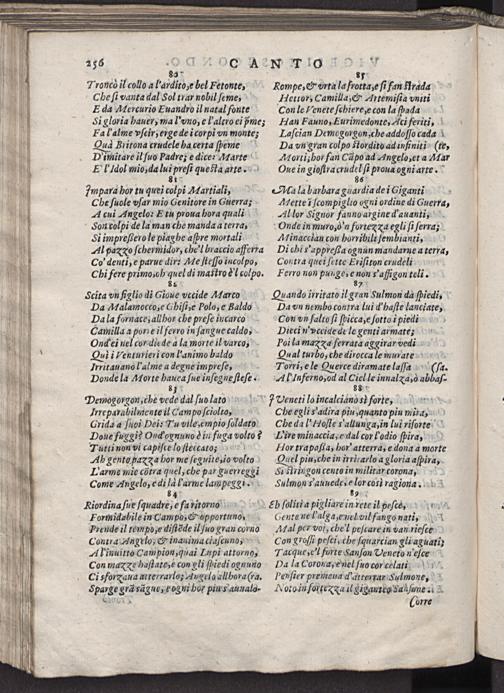 256
CANTO
80
Troncò il collo a l'ardito, e bel Fetonte,
Che si vanta dal Sol trar nobil seme,
E da Mercurio Euandro il natal fonte
Si gloria hauer, ma l'vno, e l'altro ei pme;
Fa l'alme vscir, erge de i corpi vn monte;
Quà Britona crudele ha certa speme
D'imitare il suo Padre; e dice: Marte
E' l'Idol mio, da lui presi questa arte.
81
Impara hor tu quei colpi Martiali,
Che suole vsar mio Genitore in Guerra;
A cui Angelo: E tu proua hora quali
Son colpi de la man che manda a terra,
Sì impressero le piaghe aspre mortali
Al pazzo schermidor, che'l braccio afferra
Co' denti, e parue dir: Me stesso incolpo,
Chi fere primo, oh quel di mastro è'l colpo.
82
Scita vn figlio di Gioue vccide Marco
Da Malamocco, e Ghisi, e Polo, e Baldo
Da la fornace, allhor che prese incarco
Camilla a porre il ferro in sangue caldo,
Ond'ei nel cor diede a la morte il varco,
Quì i Venturieri con l'animo baldo
Irritauano l'alme a degne imprese,
Donde la Morte hauea sue insegne stese.
83
Demogorgon, che vede dal suo lato
Irreparabilmente il Campo sciolto,
Grida a suoi Dei: Tu vile, empio soldato
Doue fuggi? Ond'ognuno è in fuga volto?
Tutti non vi capisce lo steccato;
Ah gente pazza hor me seguite, io volto
L'arme mie cõtra quel, che par guerreggi
Come Angelo, e di là l'arme lampeggi.
84
Riordina sue squadre, e fa ritorno
Formidabile in Campo, & opportuno,
Prende il tempo, e distẽde il suo gran corno
Contra Angelo, & inanima ciascuno,
A l'inuitto Campion, quai Lupi attorno,
Con mazze hastate, e con gli spiedi ognuno
Ci sforzaua atterrarlo; Angelo allhora (ra.
Sparge grã sãgue, e ogni hor piu s'aualo-
85
Rompe, & vrta la frotta, e si fan strada
Hettor, Camilla, & Artemisia vniti
Con le Venete schiere, e con la spada
Han Fauno, Eurimedonte, Aci feriti,
Lascian Demogorgon, che addosso cada
Da vn gran colpo stordito ad infiniti (te,
Morti, hor fan Cãpo ad Angelo, et a Mar
Oue in giostra crudel si proua ogni arte.
86
Ma la barbara guardia de i Giganti
Mette ì scompiglio ogni ordine di Guerra,
Al lor Signor fanno argine d'auanti,
Onde in muro, ò'n fortezza egli si serra;
Minaccian con horribili sembianti,
Di chi s'appressa ognun mandarne a terra,
Contra quei sette Erisiton crudeli
Ferro non punge, e non s'affigon teli.
87
Quando irritato il gran Sulmon da spiedi,
Da vn nembo contra lui d'haste lanciate,
Con vn salto si spicca, e sotto i piedi
Dieci n'vccide de le genti armate;
Poi la mazza ferrata aggirar vedi
Qual turbo, che dirocca le murate
Torri, e le Querce diramate lassa (sa.
A l'Inferno, od al Ciel le innalza, ò abbas-
88
I Veneti lo incalciano sì forte,
Che egli s'adira piu, quanto piu mira,
Che da l'Hoste s'allunga, in lui risorte
L'ire minaccia, e dal cor l'odio spira,
Hor trapassa, hor' atterra, e dona a morte
Quel piu, che in irritarlo a gloria aspira,
Si stringon cento in militar corona,
Sulmon s'auuede, e lor così ragiona.
89
Eh soliti a pigliare in rete il pesce,
Gente ne l'alga, e nel vil fango nati,
Mal per voi, che'l pescare in van riesce
Con grossi pesci, che squarcian gli aguati;
Tacque, e'l forte Sanson Veneto n'esce
Da la Corona, e nel suo cor celati
Pensier premeua d'atterrar Sulmone,
Noto in fortezza il gigantéo Sansone.
Corre